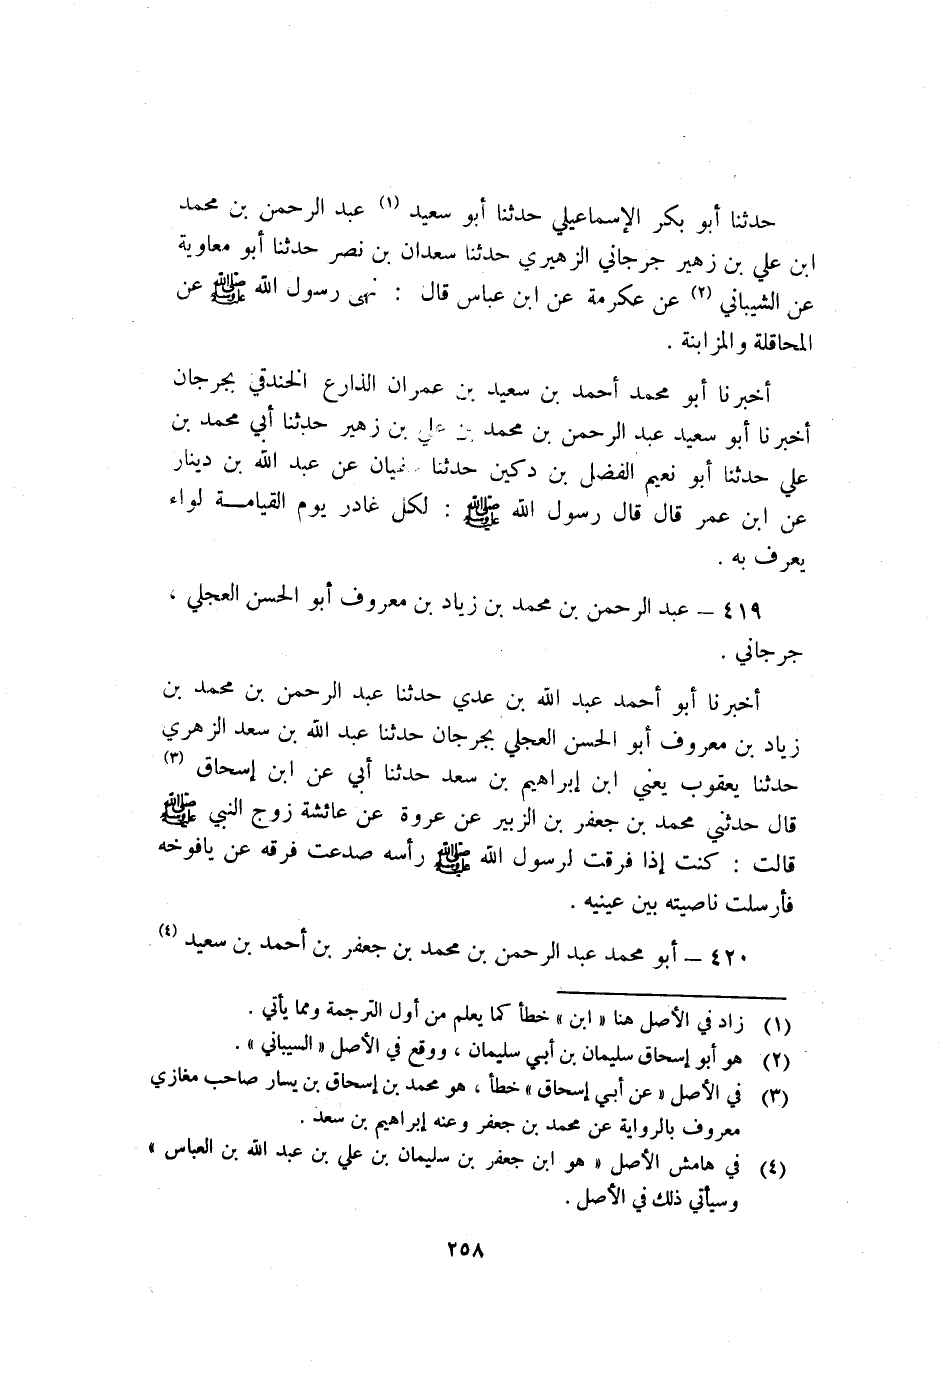 حدثنا أبو بكر الإسماعيلي حدثنا أبو سعيد (١) عبد الرحمن بن محمد
ابن علي بن زهير جرجاني الزهيري حدثنا سعدان بن نصر حدثنا أبو معاوية
عن الشيباني (٢) عن عكرمة عن ابن عباس قال : نهى رسول الله ﷺ عن
المحاقلة والمزابنة .
أخبرنا أبو محمد أحمد بن سعيد بن عمران الذارع الخندقي بجرجان
أخبرنا أبو سعيد عبد الرحمن بن محمد بن علي بن زهير حدثنا أبي محمد بن
علي حدثنا أبو نعيم الفضل بن دكين حدثنا عن عبد الله بن دينار
عن ابن عمر قال قال رسول الله ﷺ : لكل غادر يوم القيامة لواء
يعرف به .
٤١٩ – عبد الرحمن بن محمد بن زياد بن معروف أبو الحسن العجلي ،
جرجاني .
أخبرنا أبو أحمد عبد الله بن عدي حدثنا عبد الرحمن بن محمد بن
زياد بن معروف أبو الحسن العجلي بجرجان حدثنا عبد الله بن سعد الزهري
حدثنا يعقوب يعني ابن إبراهيم بن سعد حدثنا أبي عن ابن إسحاق (٣)
قال حدثني محمد بن جعفر بن الزبير عن عروة عن عائشة زوج النبي ﷺ
قالت : كنت إذا فرقت لرسول الله ﷺ رأسه صدعت فرقه عن يافوخه
فأرسلت ناصيته بين عينيه .
٤٢٠ – أبو محمد عبد الرحمن بن محمد بن جعفر بن أحمد بن سعيد (٤)
(١) زاد في الأصل هنا « ابن » خطأ كما يعلم من أول الترجمة ومما يأتي .
(٢) هو أبو إسحاق سليمان بن أبي سليمان ، ووقع في الأصل « السيباني » .
(٣) في الأصل « عن أبي إسحاق » خطأ ، هو محمد بن إسحاق بن يسار صاحب مغازي
معروف بالرواية عن محمد بن جعفر وعنه إبراهيم بن سعد .
(٤) في هامش الأصل « هو ابن جعفر بن سليمان بن علي بن عبد الله بن العباس »
وسيأتي ذلك في الأصل .
٢٥٨